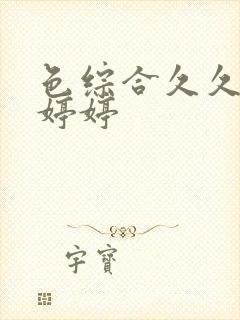 色综合久久
婷婷
字寶